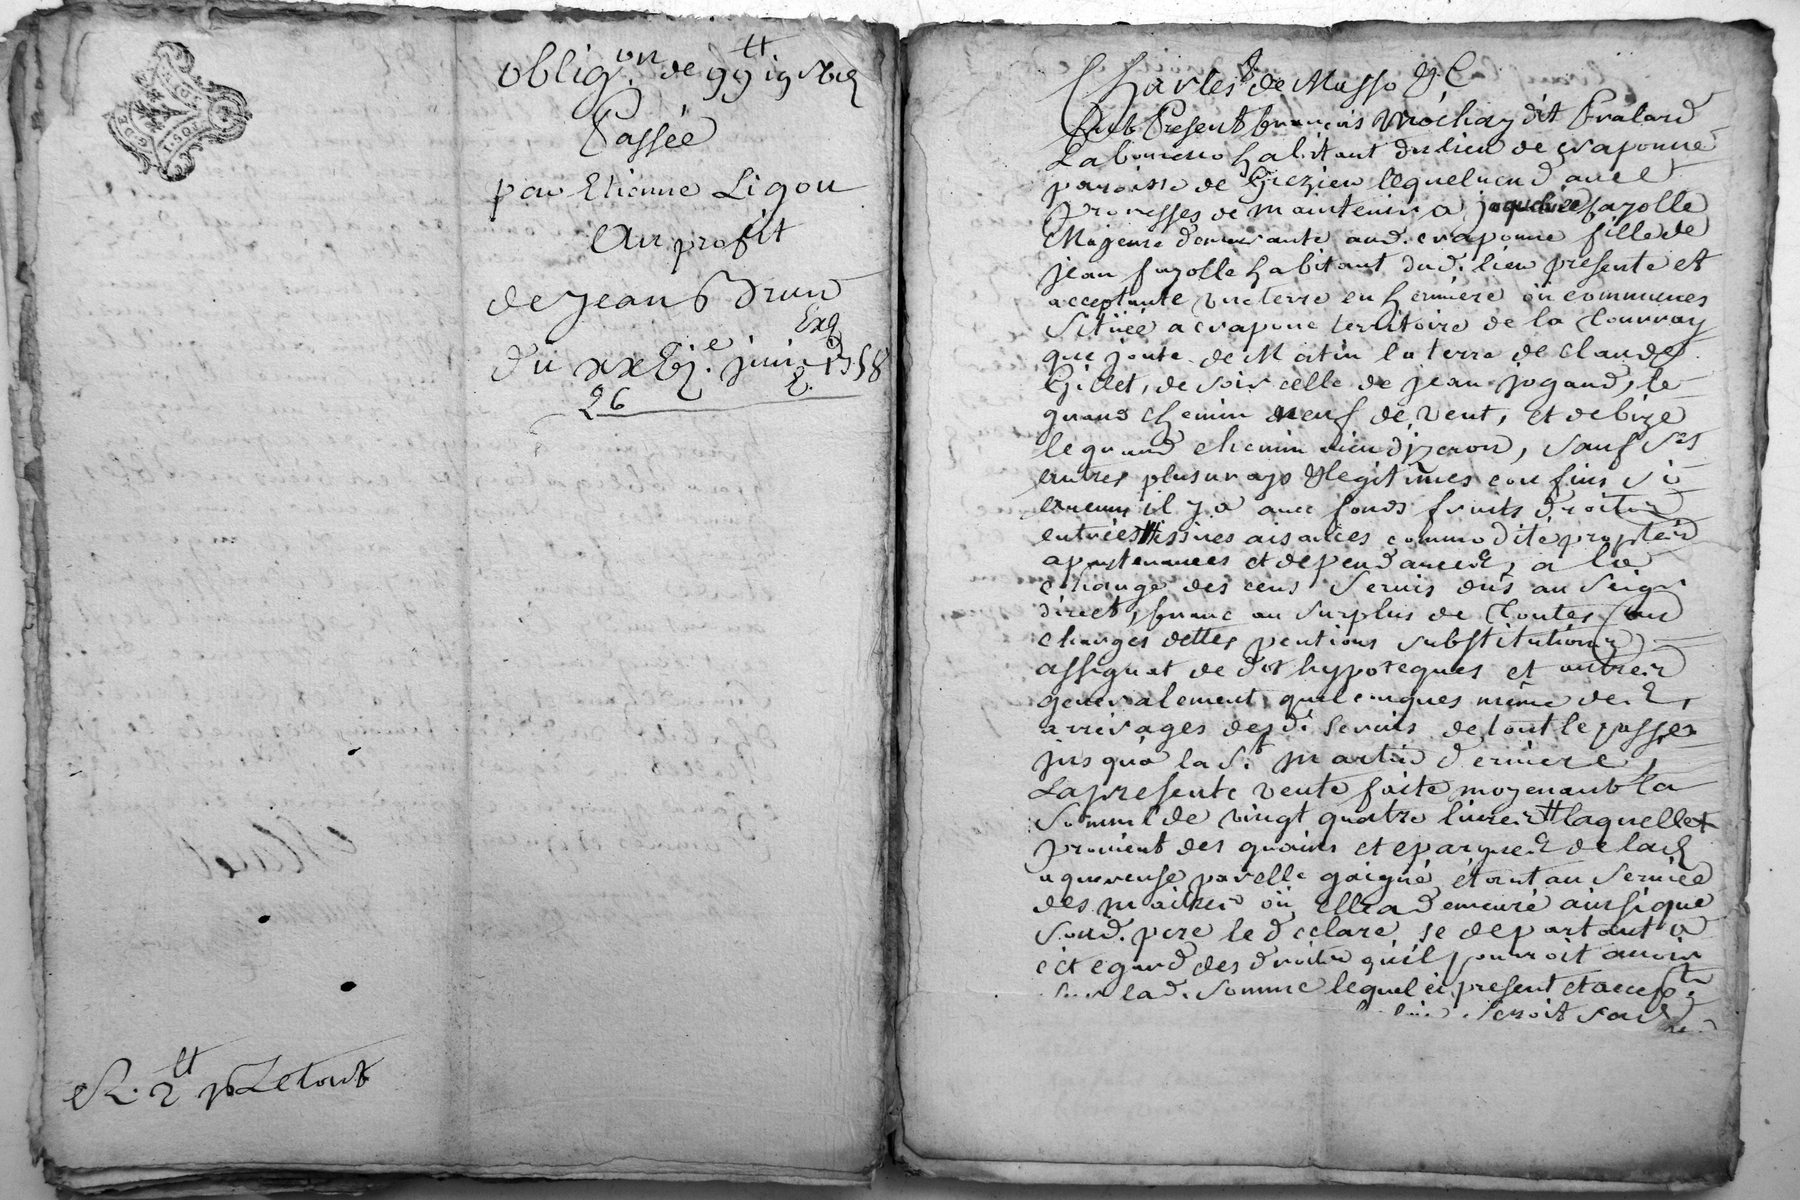 oblig.on de 99tt 19 s
Passée
par Etienne Ligou
Au profit
de jean Brun
Exg
Du xxbj.e juin 1758
26
R. 2tt p Letout
Charles de Masso &C
fut Present françois Mochay dit Pralard
Laboureur habitant du lieu de craponne
paroisse de Grezieu lequel vend avec
Promesses de maintenir a fayolle
Majeure demeurante aud. craponne fille de
jean fayolle habitant dud. lieu presente et
acceptante une terre en hermiere ou communes
Sitüée a crapone territoire de la Tourray
que joute de Matin la terre de claude
Gillet, de soir celle de jean jogand, le
grand chemin neuf de vent, et de bize
le grand chemin vieu dizeron, sauf ses
autres plus vrays & legitimes confins si
aucuns il y a avec fonds fruits droits
entrées issües aisances commodité proprietéd
apartenances et dependances, a la
charge des cens servis dus au Seigr
direct, franc au surplus de toutes
charges dettes pentions substitutions
assignat de dot hypoteques et autres
generalement quelconques même des
arrérages desd. servis de tout le passé
jusqu'a la St. Martin derniere,
La presente vente faite moyenant la
Somme de vingt quatre livres tt laquelle
provient des gains et epargnes de lad
aquereuse par elle gaigné étant au service
des maitres où elle a demeuré ainsi que
sond. pere le declare se departant a
cet egard des droits qu'il pourroit avoir
sur lad. somme lequel ici present et accep.t
seroit sond